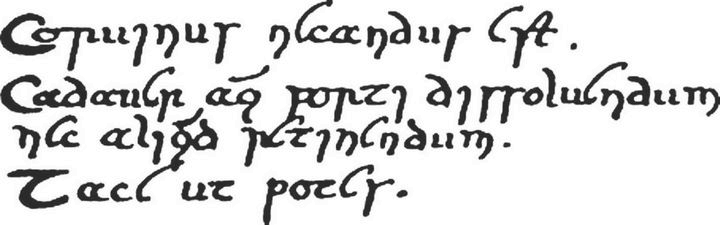 Coruinus necandus est.
Cadauer aq̃ forti dissoluendum
nec aliq̃d retinendum.
Tace ut potes.